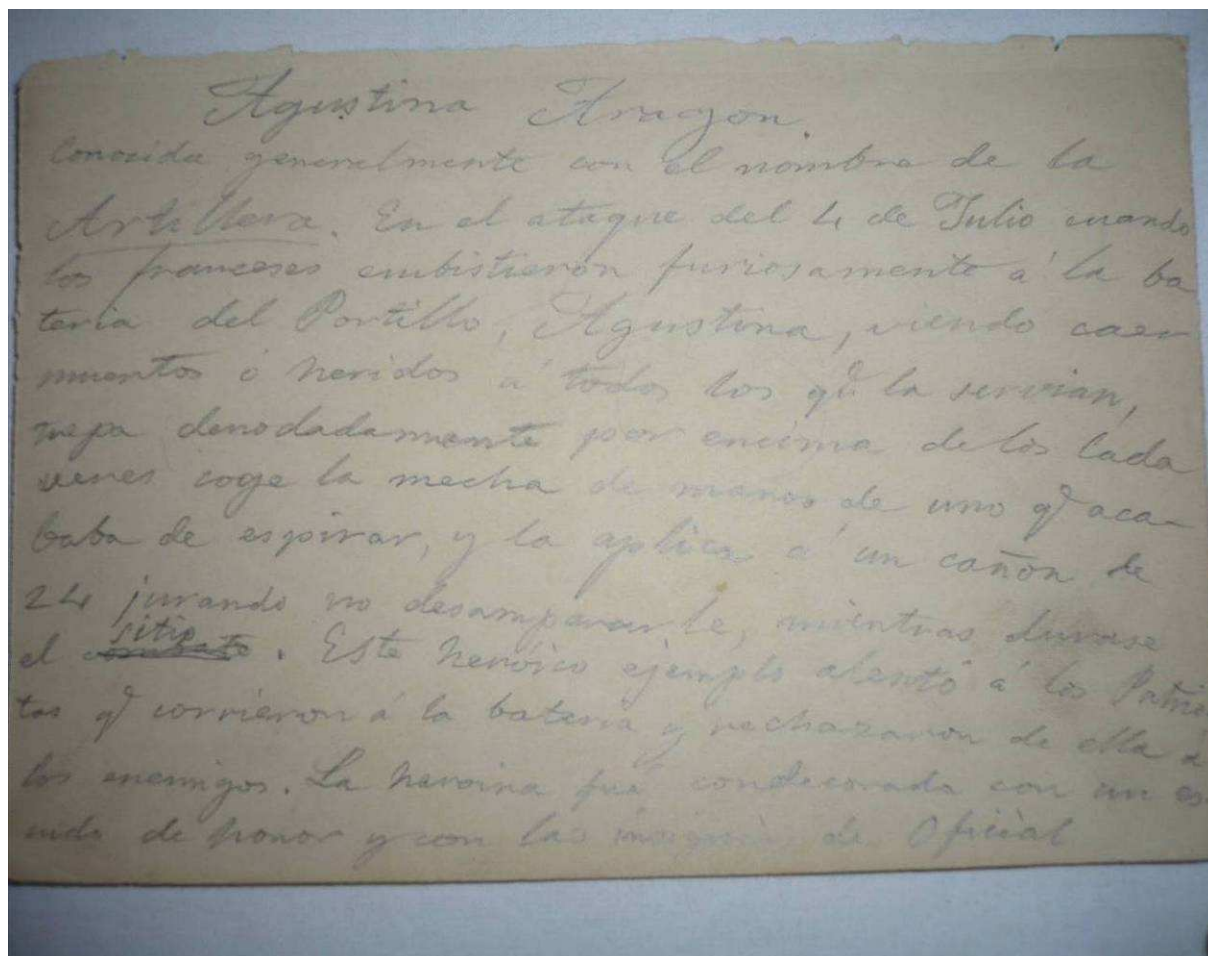 Agustina Aragon.
Conocida generalmente con el nombre de la
Artillera. En el ataque del 4 de Julio cuando
los franceses embistieron furiosamente á la ba
teria del Portillo, Agustina, viendo caer
muertos ó heridos á todos los qe la servian,
trepa denodadamente por encima de los Cada
veres coge la mecha de manos de uno qe aca-
baba de espirar, y la aplica á un cañon de
24 jurando no desampararle, mientras durase
el sitio. Este heróico ejemplo alentó á los Patrio
tas qe corrieron á la bateria y rechazaron de ella á
los enemigos. La heroina fué condecorada con un es
cudo de honor y con las insignias de Oficial